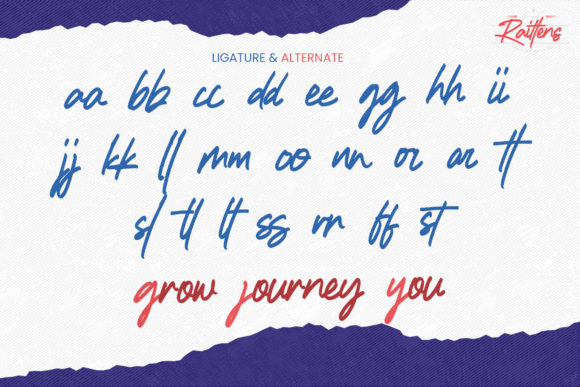 Raittens
LIGATURE & ALTERNATE
aa bb cc dd ee gg hh ii
jj kk ll mm oo nn or ar tt
sl tl lt ss rr ff st
grow journey you